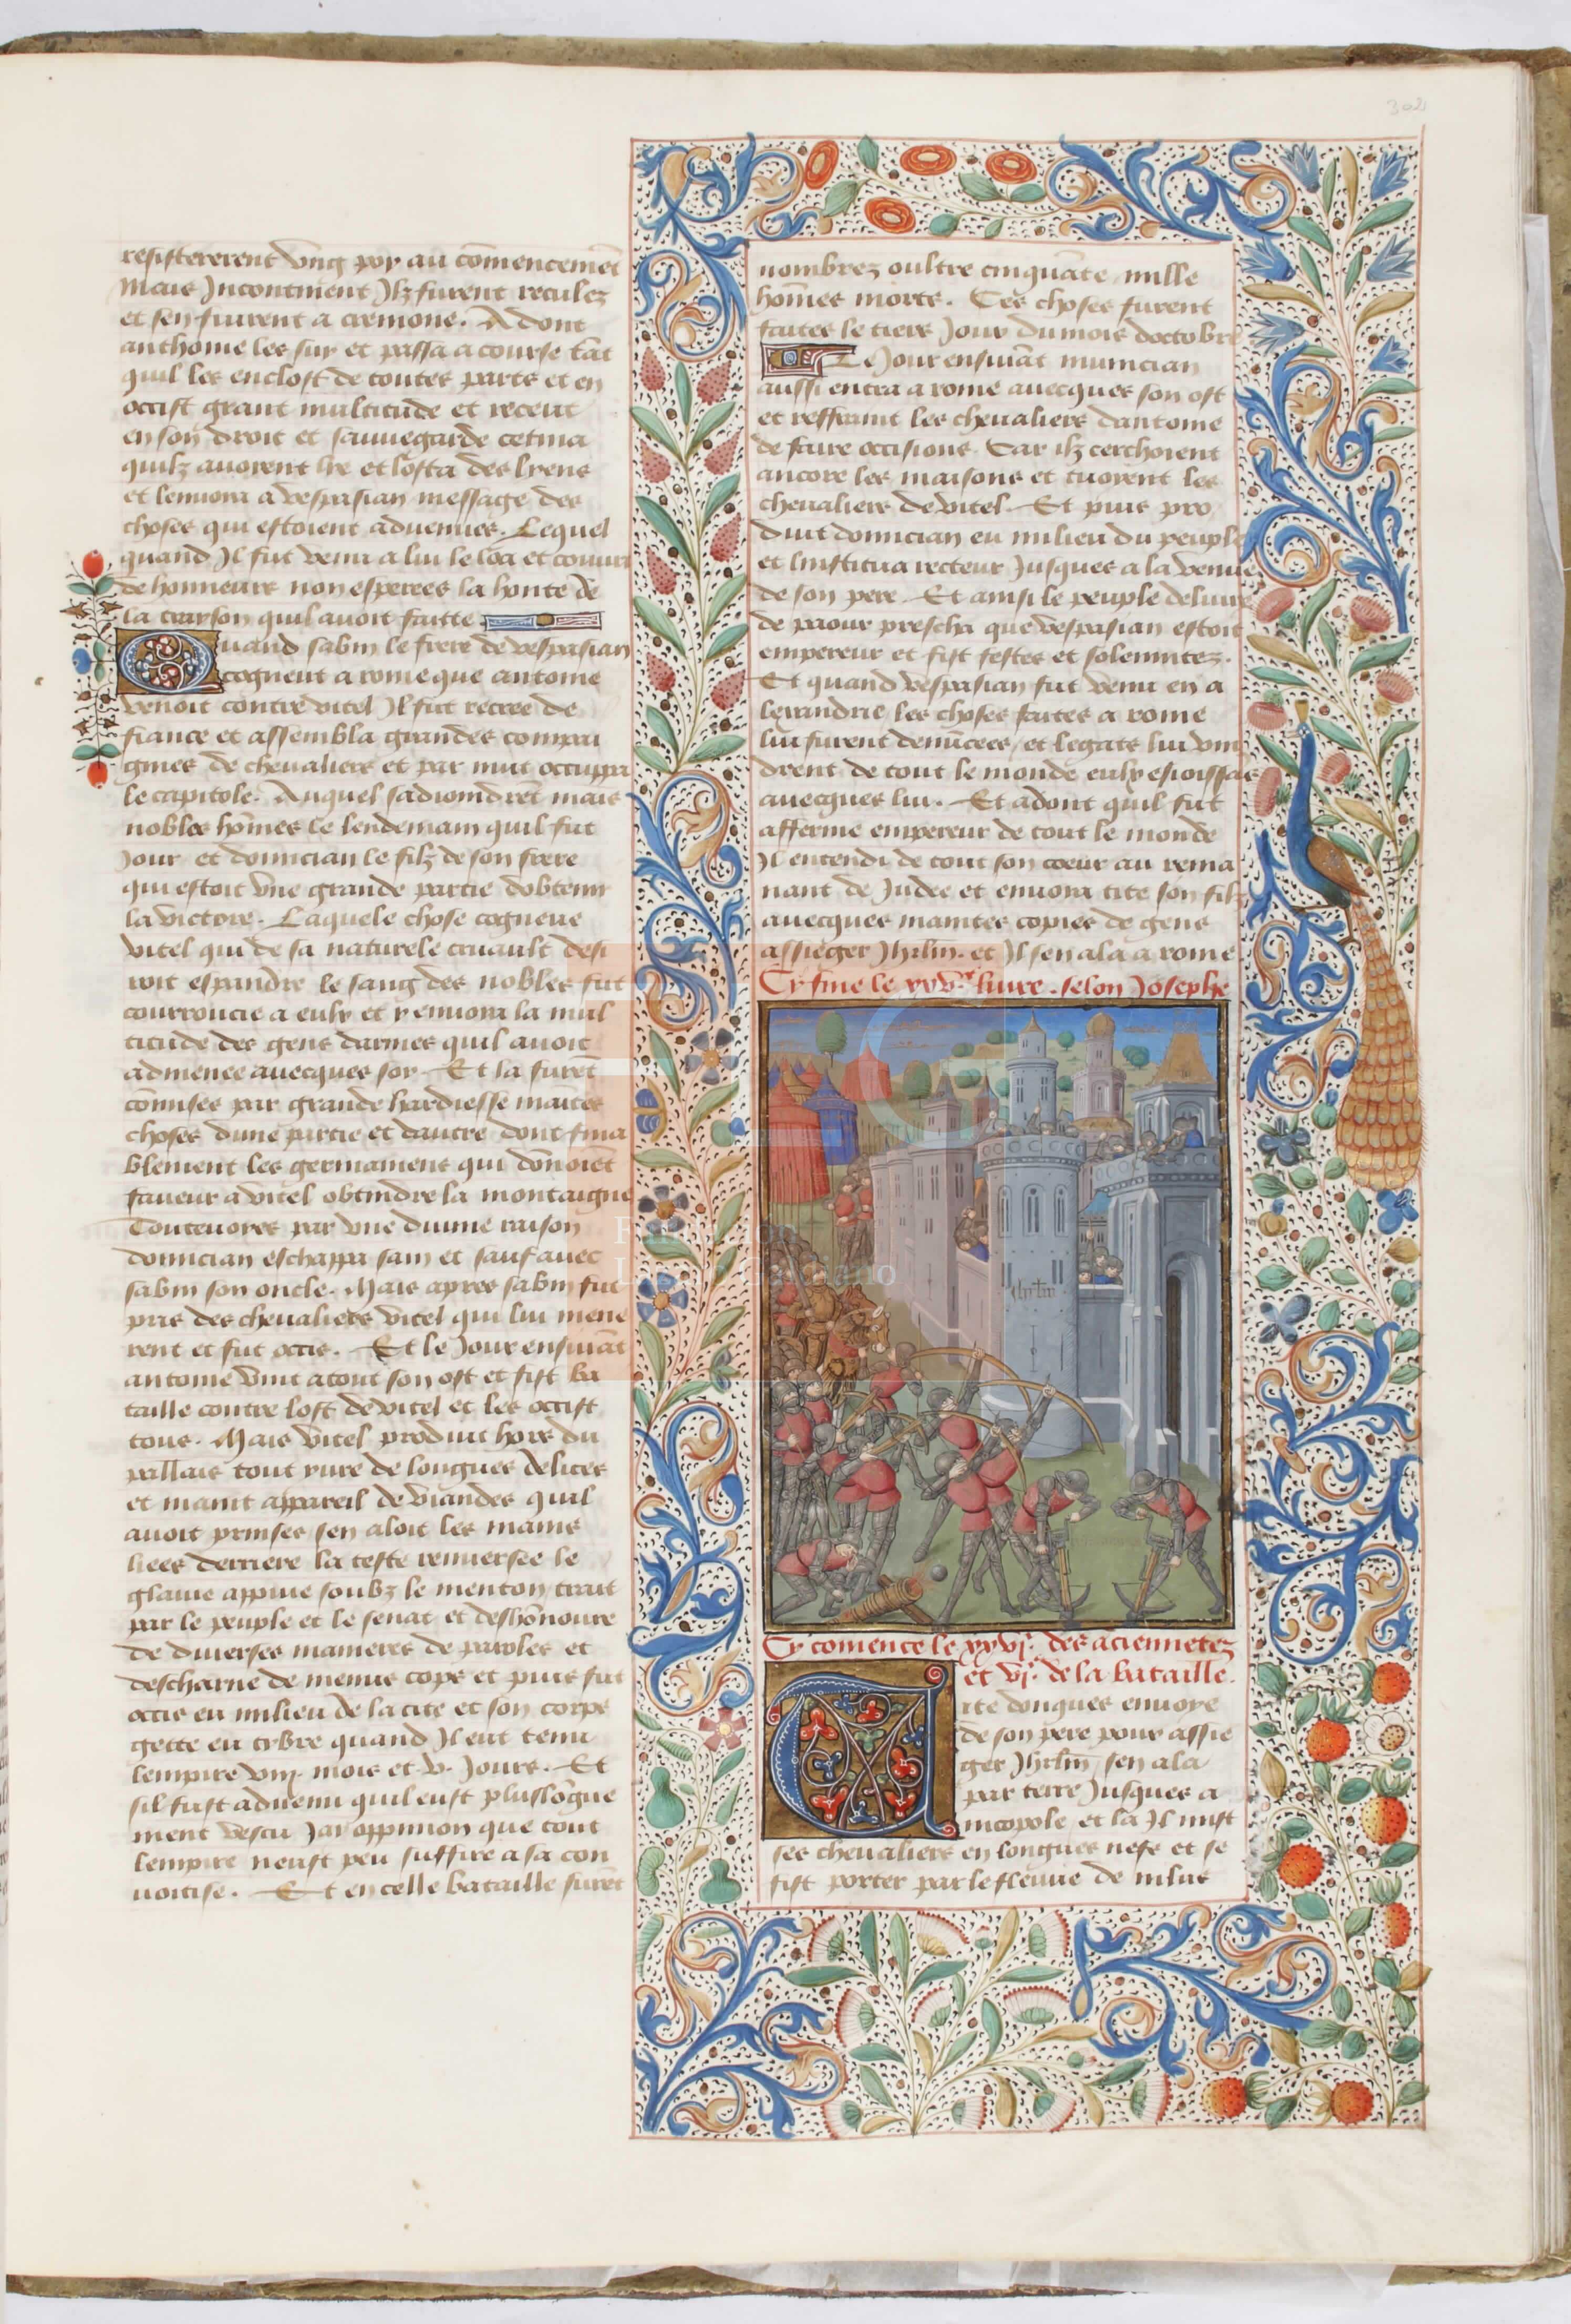 302
resistererent vng poy au cōmencemēt
Mais Incontinent Ilz furent reculez
et sen fuirent a cremone. Adont
anthoine les suy et passa a course tāt
quil les enclost de toutes pars et en
occist grant multitude et receut
en son droit et sauuegarde cecina
quilz auoyent lye et losta des lyens
et lenuoia a vespasian message des
choses qui estoient aduenues. Lequel
quand Il fut venu a lui le loa et couuri
de honneurs non esperees la honte de
la trayson quil auoit faitte
Quand sabin le frere de vespasian
cogneut a rome que antoine
venoit contre vitel Il fut recree de
fiance et assembla grandes compai
gnies de cheualiers et par nuit occupa
le capitole. Auquel sadioindrēt mais
nobles hōmes le lendemain quil fut
Jour et domician le filz de son frere
qui estoit vne grande partie dobtenir
la victore. Laquele chose cogneue
vitel qui de sa naturele cruaulte desi
roit espandre le sang des nobles fut
courroucie a eulx et y enuoia la mul
titude des gens darmes quil auoit
admenee auecques soy. Et la furēt
comises par grande hardiesse maītes
choses dune partie et dautre dont fina
blement les germaniens qui dōnoiēt
faueur a vitel obtindre la montaigne
Toutesuoyes par vne diuine raison
domician eschappa sain et sauf auec
sabin son oncle. Mais apres sabin fut
pris des cheualiers vitel qui lui mene
rent et fut occis. Et le Jour ensuiāt
antoine vint a tout son ost et fist ba
taille contre lost de vitel et les occist
tous. Mais vitel produit hors du
pallais tout yure de longues delices
et maint appareil de viandes quil
auoit prinses sen aloit les mains
liees derriere la teste renuersee le
glaiue appuie soubz le menton trait
par le peuple et le senat et deshōnoure
de diuerses manieres de paroles et
descharne de menus cops et puis fut
occis en milieu de la cite et son corps
gette en tybre quand Il eut tenu
lempire viij. mois et v. Jours. Et
sil fust aduenu quil eust pluslōgue
ment vescu Jay oppinion que tout
lempire neust peu suffire a sa con
uoitise. Et en celle bataille furēt
nombrez oultre cinquāte mille
hōmes morts. Ces choses furent
faites le tiers Jour du mois doctobre
Le Jour ensuiāt mucian
aussi entra a rome auecques son ost
et reffraint les cheualiers dantoine
de faire occisions. Car ilz cerchoient
ancore les maisons et tuoyent les
cheualiers de vitel. Et puis pro
duit domician en milieu du peuple
et linstitua recteur Jusques a la venue
de son pere. Et ainsi le peuple deliure
de paour prescha que vespasian estoit
empereur et fist festes et solennitez.
Et quand vespasian fut venu en a
lexandrie les choses faites a rome
lui furent denūcees, et legats lui vin
drent de tout le monde eulx esioissās
auecques lui. Et adont quil fut
afferme empereur de tout le monde
Il entendi de tout son coeur au rema
nant de Judee et enuoia tite son filz
auecques maintes copies de gens
assieger Jhrlm. et Il sen ala a rome
Cy fine le xxve. liure. selon Josephe
Fundación
Lázaro Galdiano
Jhrlm
Cy comence le xxvje. des aciennetez
et vje. de la bataille.
Tite donques enuoye
de son pere pour assie
ger Jhrlm sen ala
par terre Jusques a
nicopole et la Il mist
ses cheualiers en longues nefs et se
fist porter par le fleuue de nilus